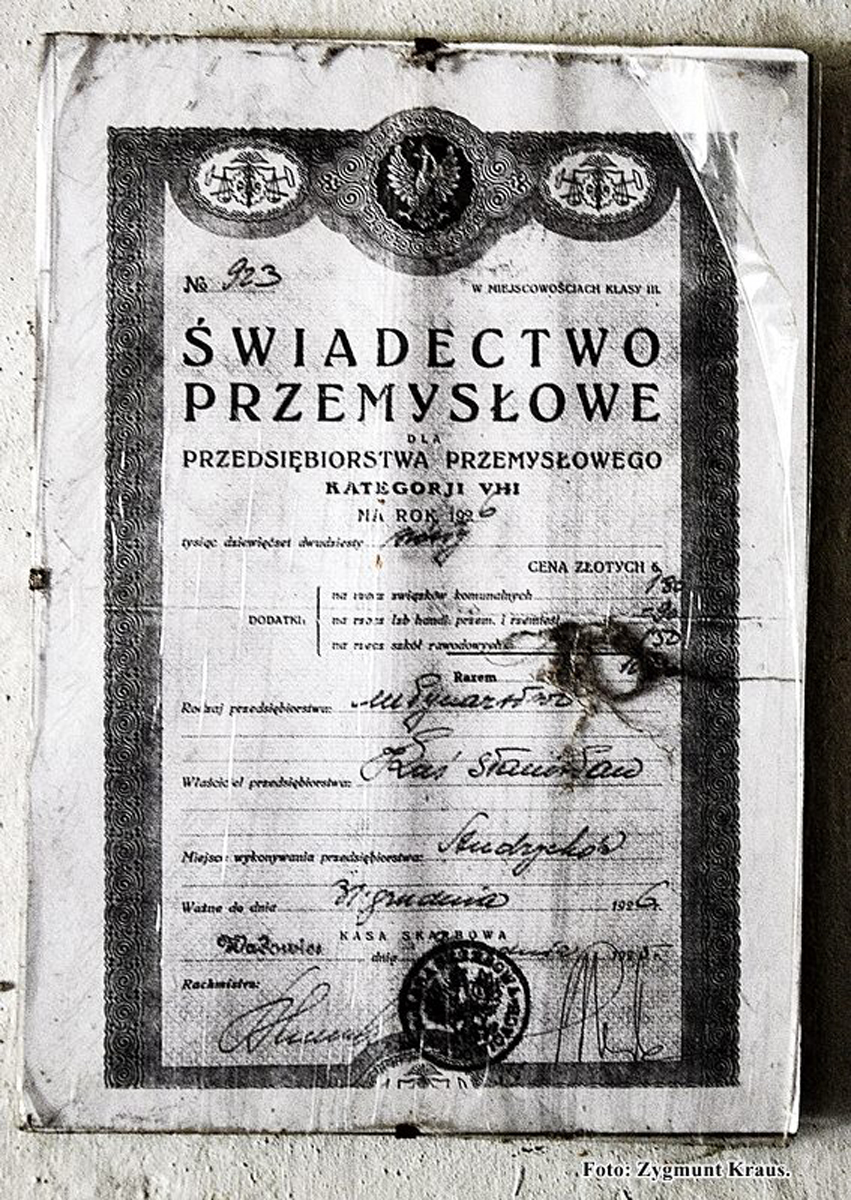 № 923
W MIEJSCOWOŚCIACH KLASY III.
ŚWIADECTWO
PRZEMYSŁOWE
DLA
PRZEDSIĘBIORSTWA PRZEMYSŁOWEGO
KATEGORJI VIII
NA ROK 1926
tysiąc dziewięćset dwudziesty
CENA ZŁOTYCH 6.
DODATKI:
na rzecz związków komunalnych
na rzecz Izb handl. przem. i rzemieśl.
na rzecz szkół zawodowych
Razem
Rodzaj przedsiębiorstwa: Młynarstwo
Właściciel przedsiębiorstwa: Łaś Stanisław
Miejsce wykonywania przedsiębiorstwa: Andrychów
Ważne do dnia 31 grudnia 1926 r.
KASA SKARBOWA
Wadowice dnia 1925 r.
Rachmistrz:
Foto: Zygmunt Kraus.